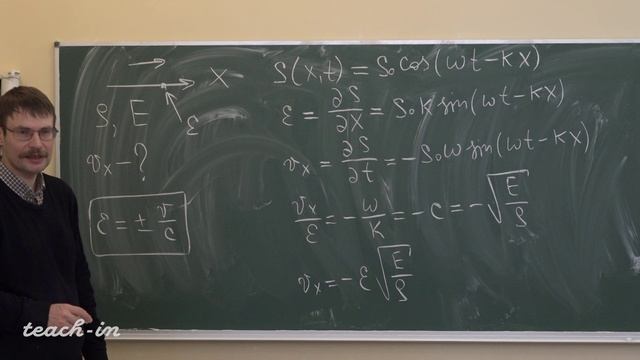 x
ρ, E
ε
v_x - ?
ε = ± v/c
S(x,t) = S₀cos(ωt-kx)
ε = ∂S/∂x = S₀k sin(ωt-kx)
v_x = ∂S/∂t = -S₀ω sin(ωt-kx)
v_x/ε = -ω/k = -c = -√(E/ρ)
v_x = -ε√(E/ρ)
teach-in